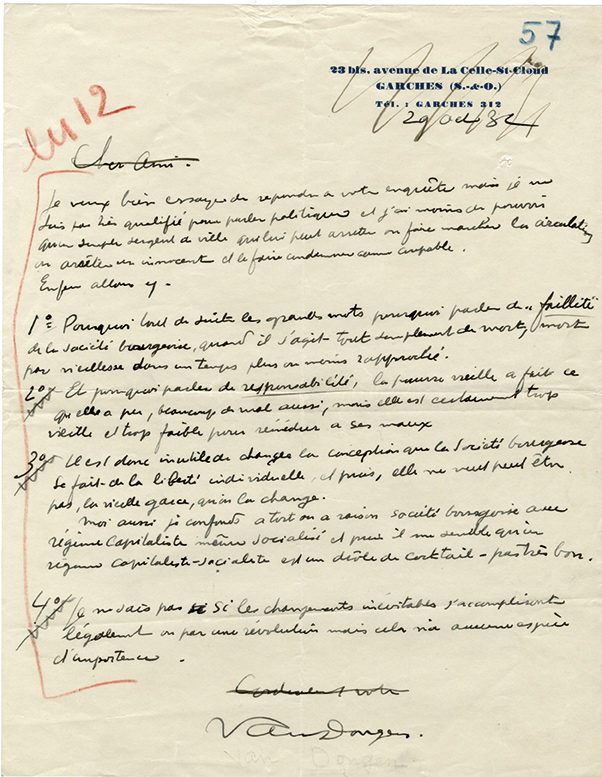 57
23 bis, avenue de La Celle-St-Cloud
GARCHES (S.-&-O.)
Tél. : GARCHES 312
29 Oct 34
lu 12
Cher Ami.
Je veux bien essayer de repondre a votre enquête mais je ne
suis pas très qualifié pour parler politique et j'ai moins de pouvoir
qu'un simple sergent de ville qui lui peut arrêter ou faire marcher la circulation
ou arrêter un innocent et le faire condamner comme coupable.
Enfin allons y -
1º= Pourquoi tout de suite les grands mots pourquoi parler de "faillite
de la société bourgeoise, quand il s'agit tout simplement de mort, mort
par vieillesse dans un temps plus ou moins rapproché.
2º Et pourquoi parler de responsabilité, la pauvre vieille a fait ce
qu'elle a pu, beaucoup de mal aussi, mais elle est certainement trop
vieille et trop faible pour remédier a ses maux
3º Il est donc inutile de changer la conception que la Société bourgeoise
se fait de la liberté individuelle, et puis, elle ne veut peut être
pas, la vieille garce, qu'on la change.
Moi aussi je confonds a tort ou a raison société bourgeoise avec
régime capitaliste même socialisé et puis il me semble qu'un
régime capitaliste-socialiste est un drôle de cocktail - pas très bon.
4º Je ne sais pas si les changements inévitables s'accompliront
légalement ou par une révolution mais cela n'a aucune espèce
d'importance.
Cordialement votre
Van Dongen
Van Dongen.